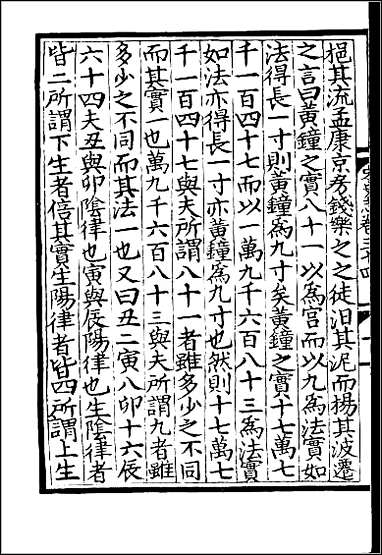 挹其流孟康京房錢樂之之徒汨其泥而揚其波遷
之言曰黃鐘之實八十一以為宮而以九為法實如
法得長一寸則黃鐘為九寸矣黃鐘之實十七萬七
千一百四十七而以一萬九千六百八十三為法實
如法亦得長一寸亦黃鐘為九寸也然則十七萬七
千一百四十七與夫所謂八十一者雖多少之不同
而其實一也萬九千六百八十三與夫所謂九者雖
多少之不同而其法一也又曰丑二寅八卯十六辰
六十四夫丑與卯陰律也寅與辰陽律也生陰律者
皆二所謂下生者倍其實生陽律者皆四所謂上生